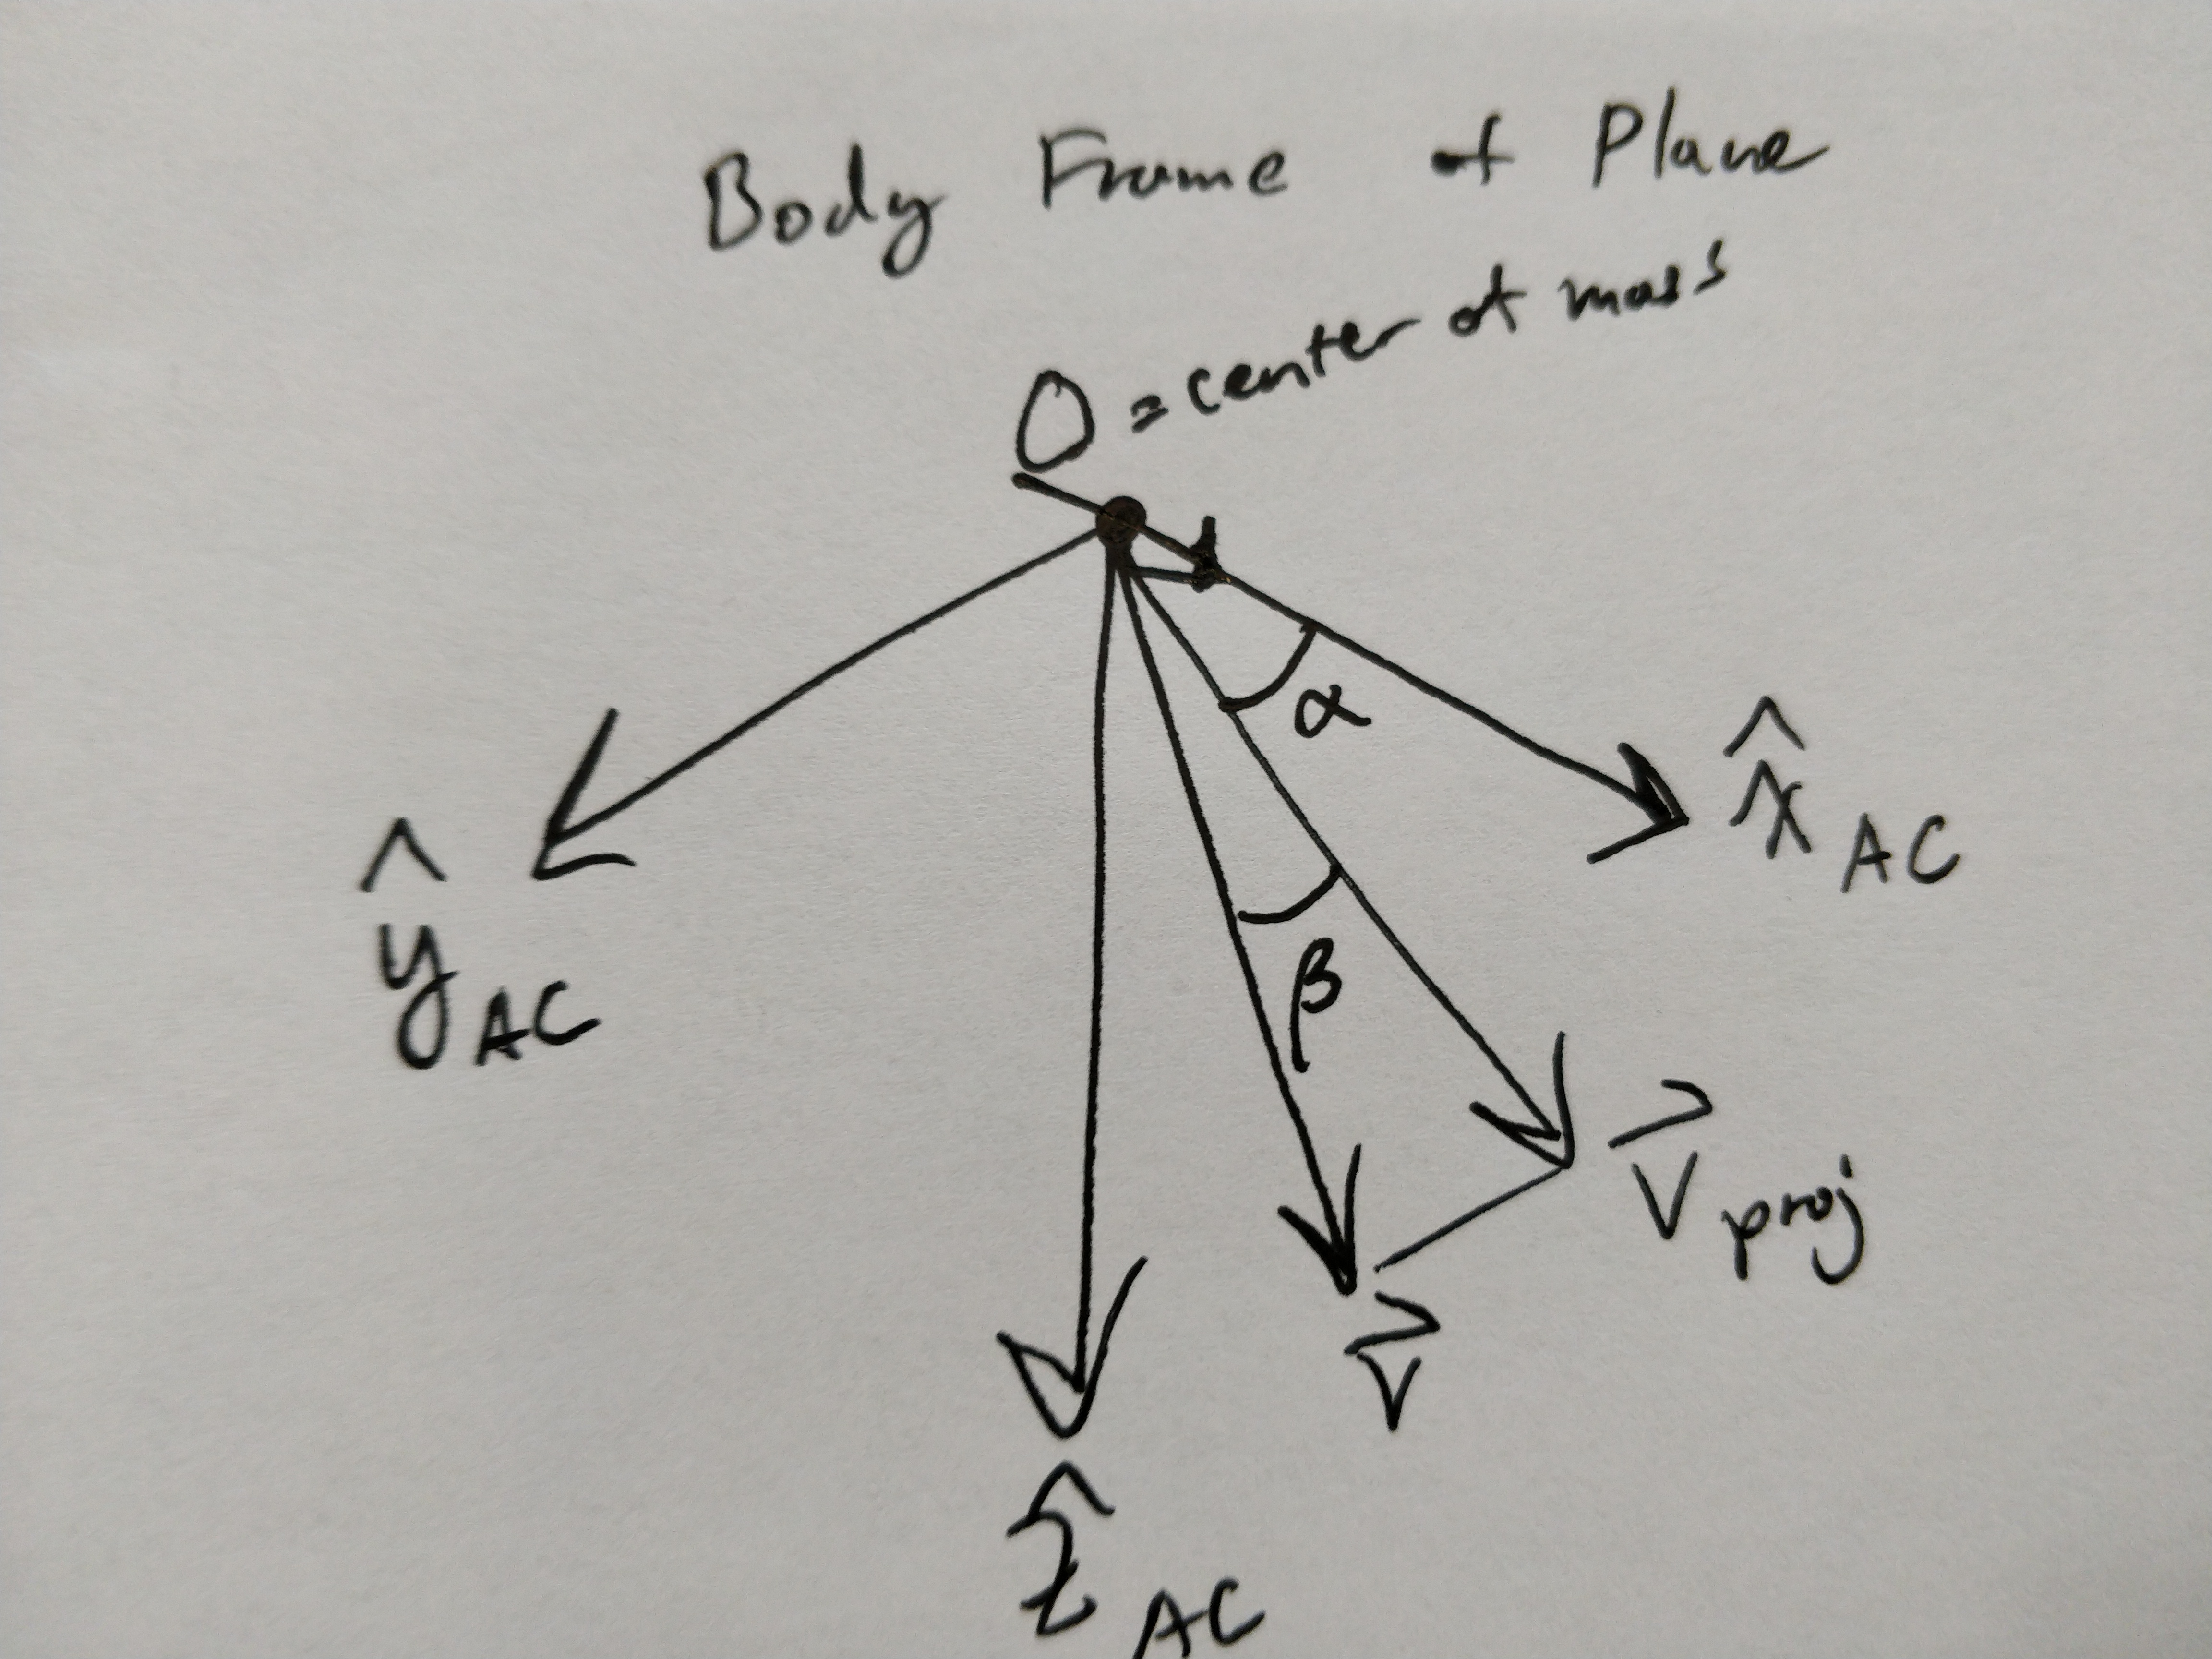 Body Frame of Plane
O = center of mass
α
x̂ AC
ŷ AC
β
v⃗ proj
v⃗
ẑ AC